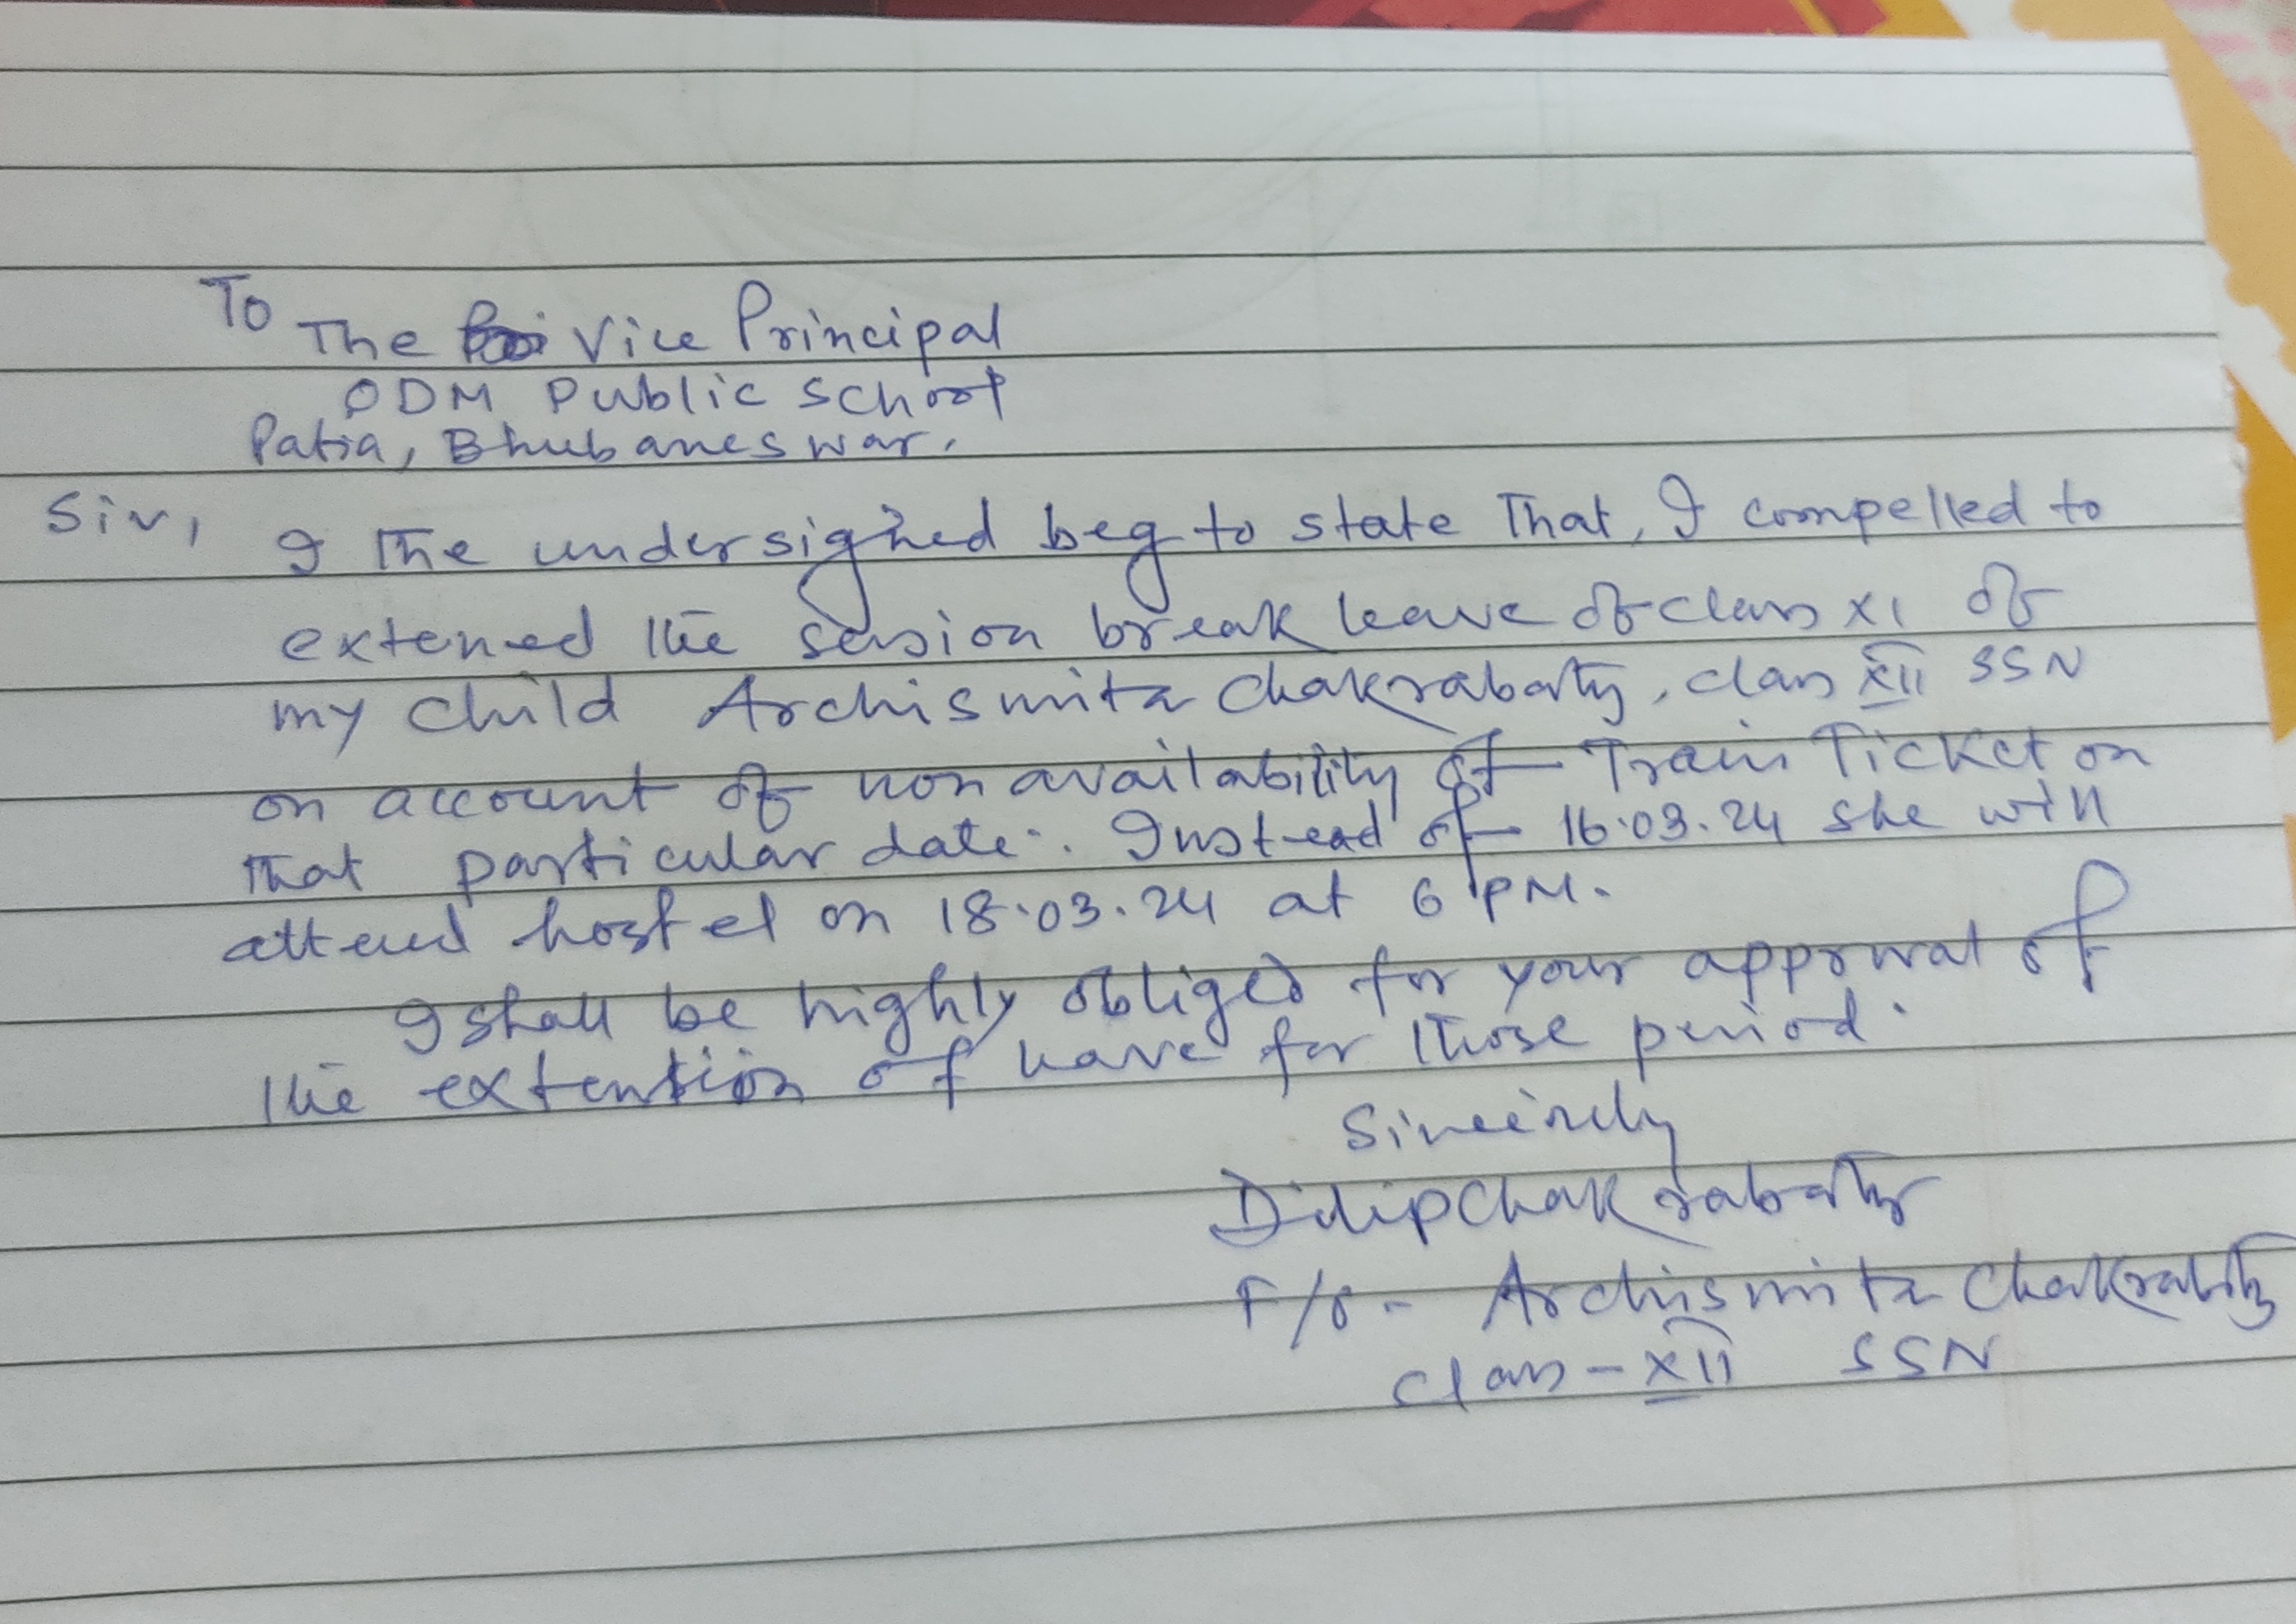 To
The Vice Principal
ODM Public School
Patia, Bhubaneswar.
Sir,
I the undersigned beg to state that, I compelled to
extened the session break leave of class XI of
my child Archismita Chakrabarty, class XII SSN
on account of non availability of Train Ticket on
that particular date. Instead of 16.03.24 she will
attend hostel on 18.03.24 at 6 PM.
I shall be highly obliged for your approval of
the extention of leave for those period.
Sincerely
Dilip Chakrabarty
F/o - Archismita Chakrabarty
Class - XII SSN